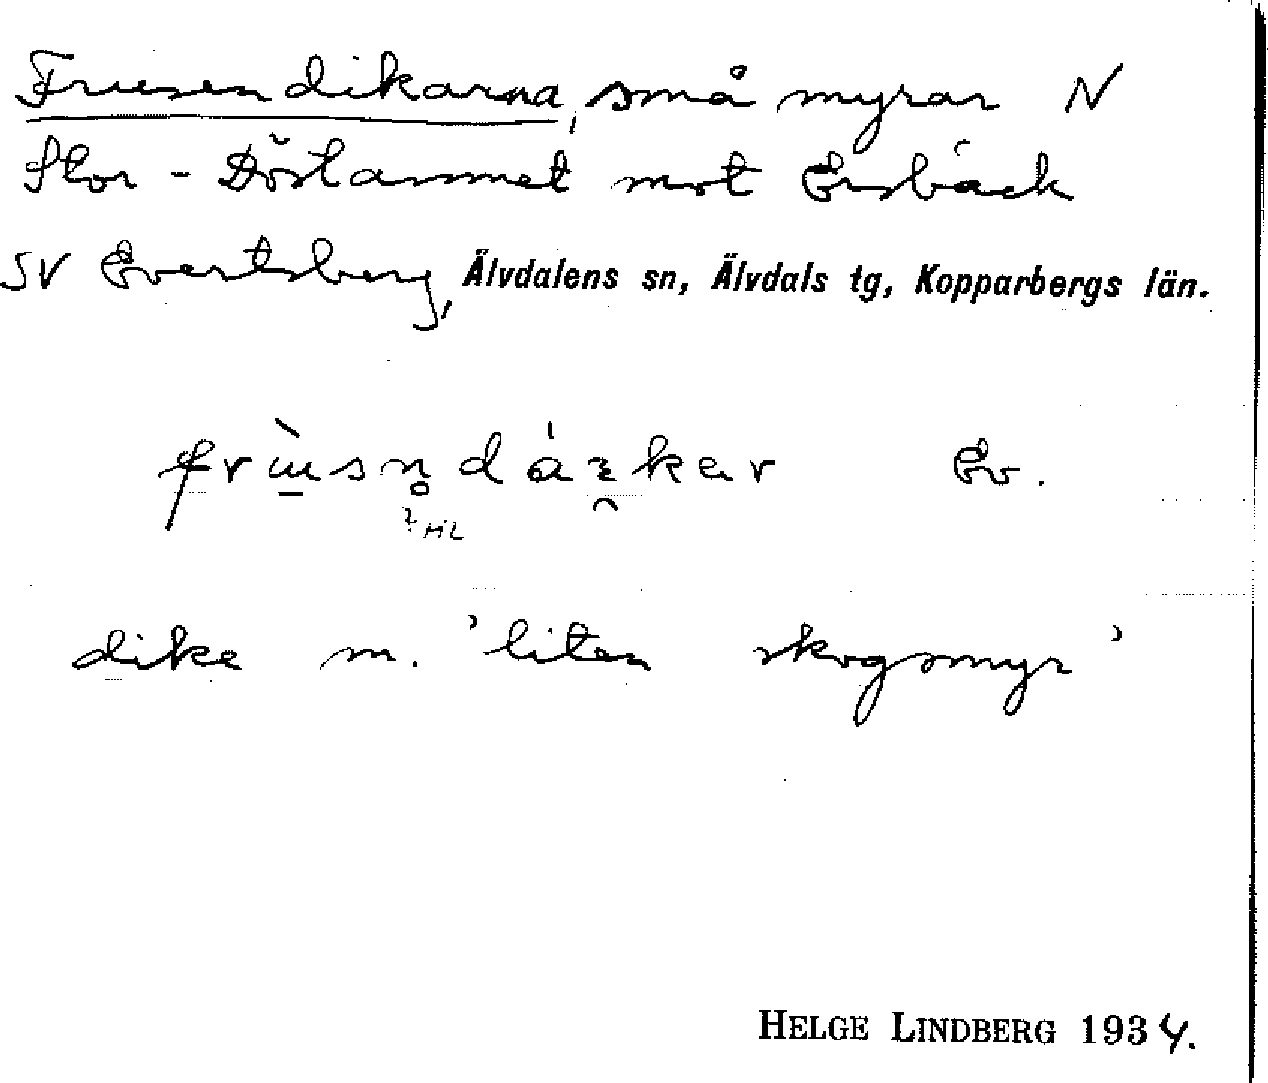 Frusendikarna, små myrar N
Stor-Döstammet mot Ersbäck
SV Evertsberg, Älvdalens sn, Älvdals tg, Kopparbergs län.
Ev.
? HL
dike m. 'liten skogsmyr'
HELGE LINDBERG 1934.